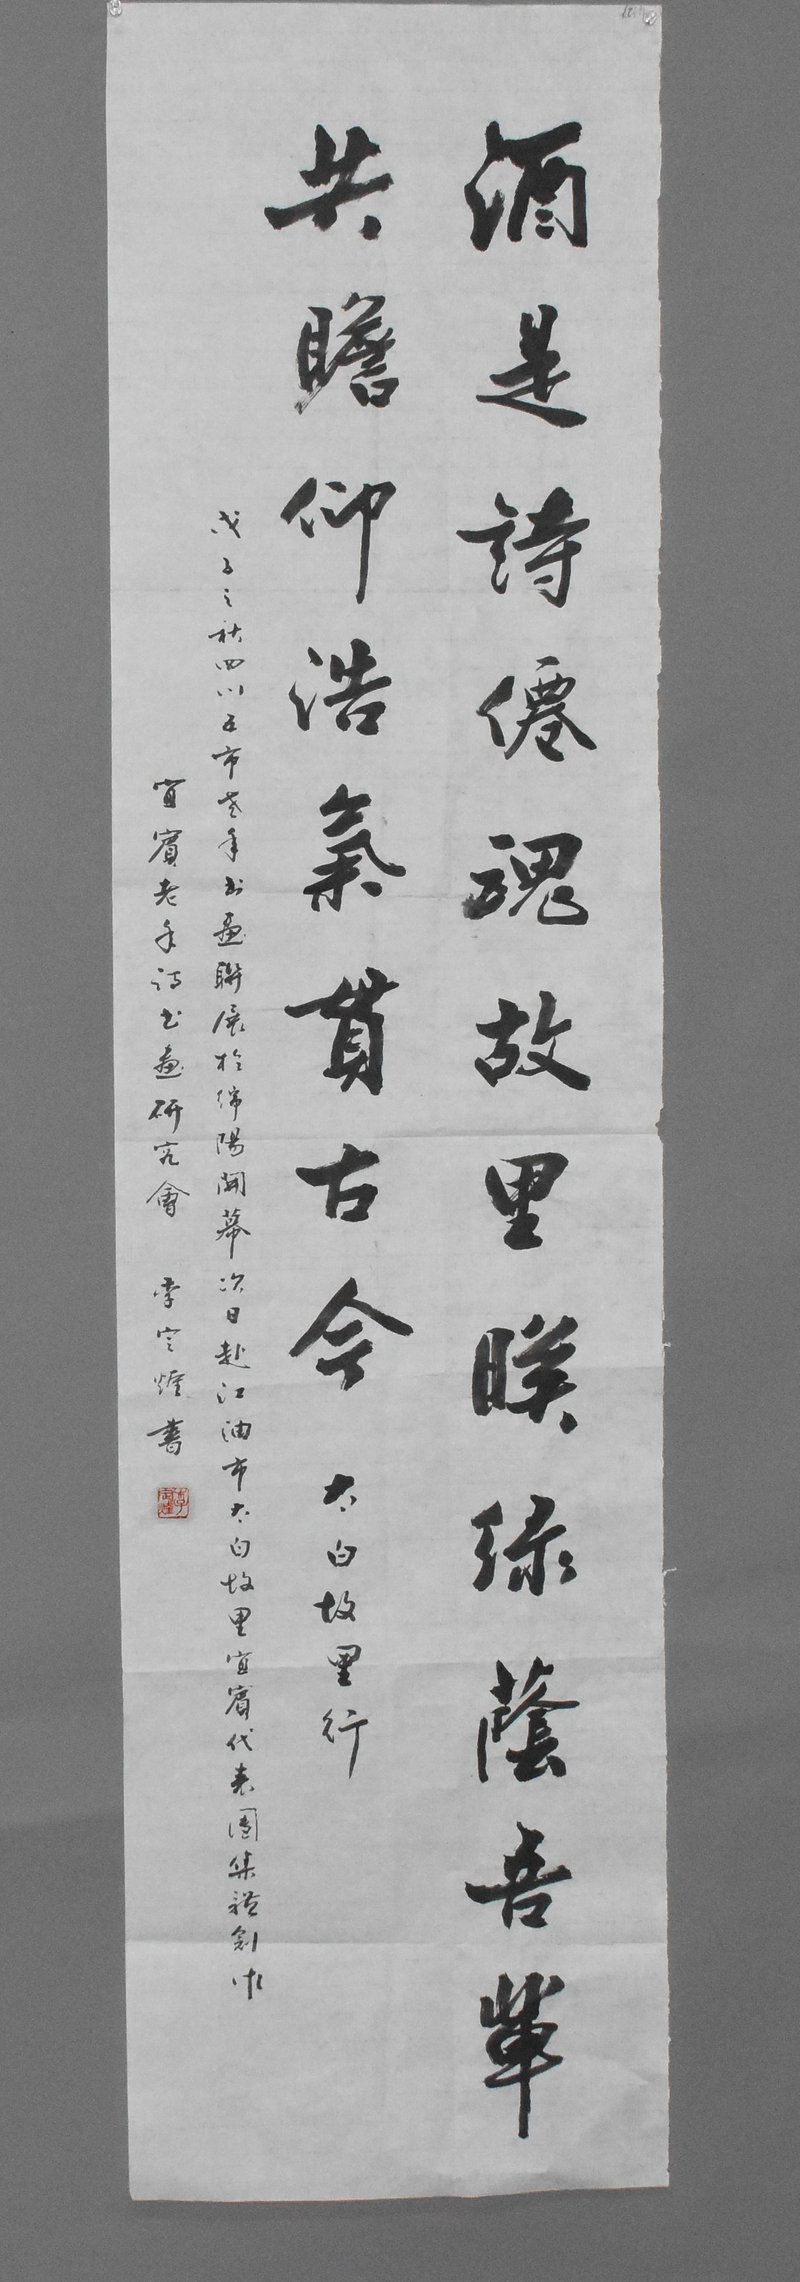 酒是詩僊魂故里映绿蔭吾輩
共瞻仰浩氣貫古今 太白故里行
戊子之秋四川五市老年书畫聯展於绵陽開幕次日赴江油市太白故里宜賓代表團集體創作
宜賓老年诗书畫研究會 李定煋書